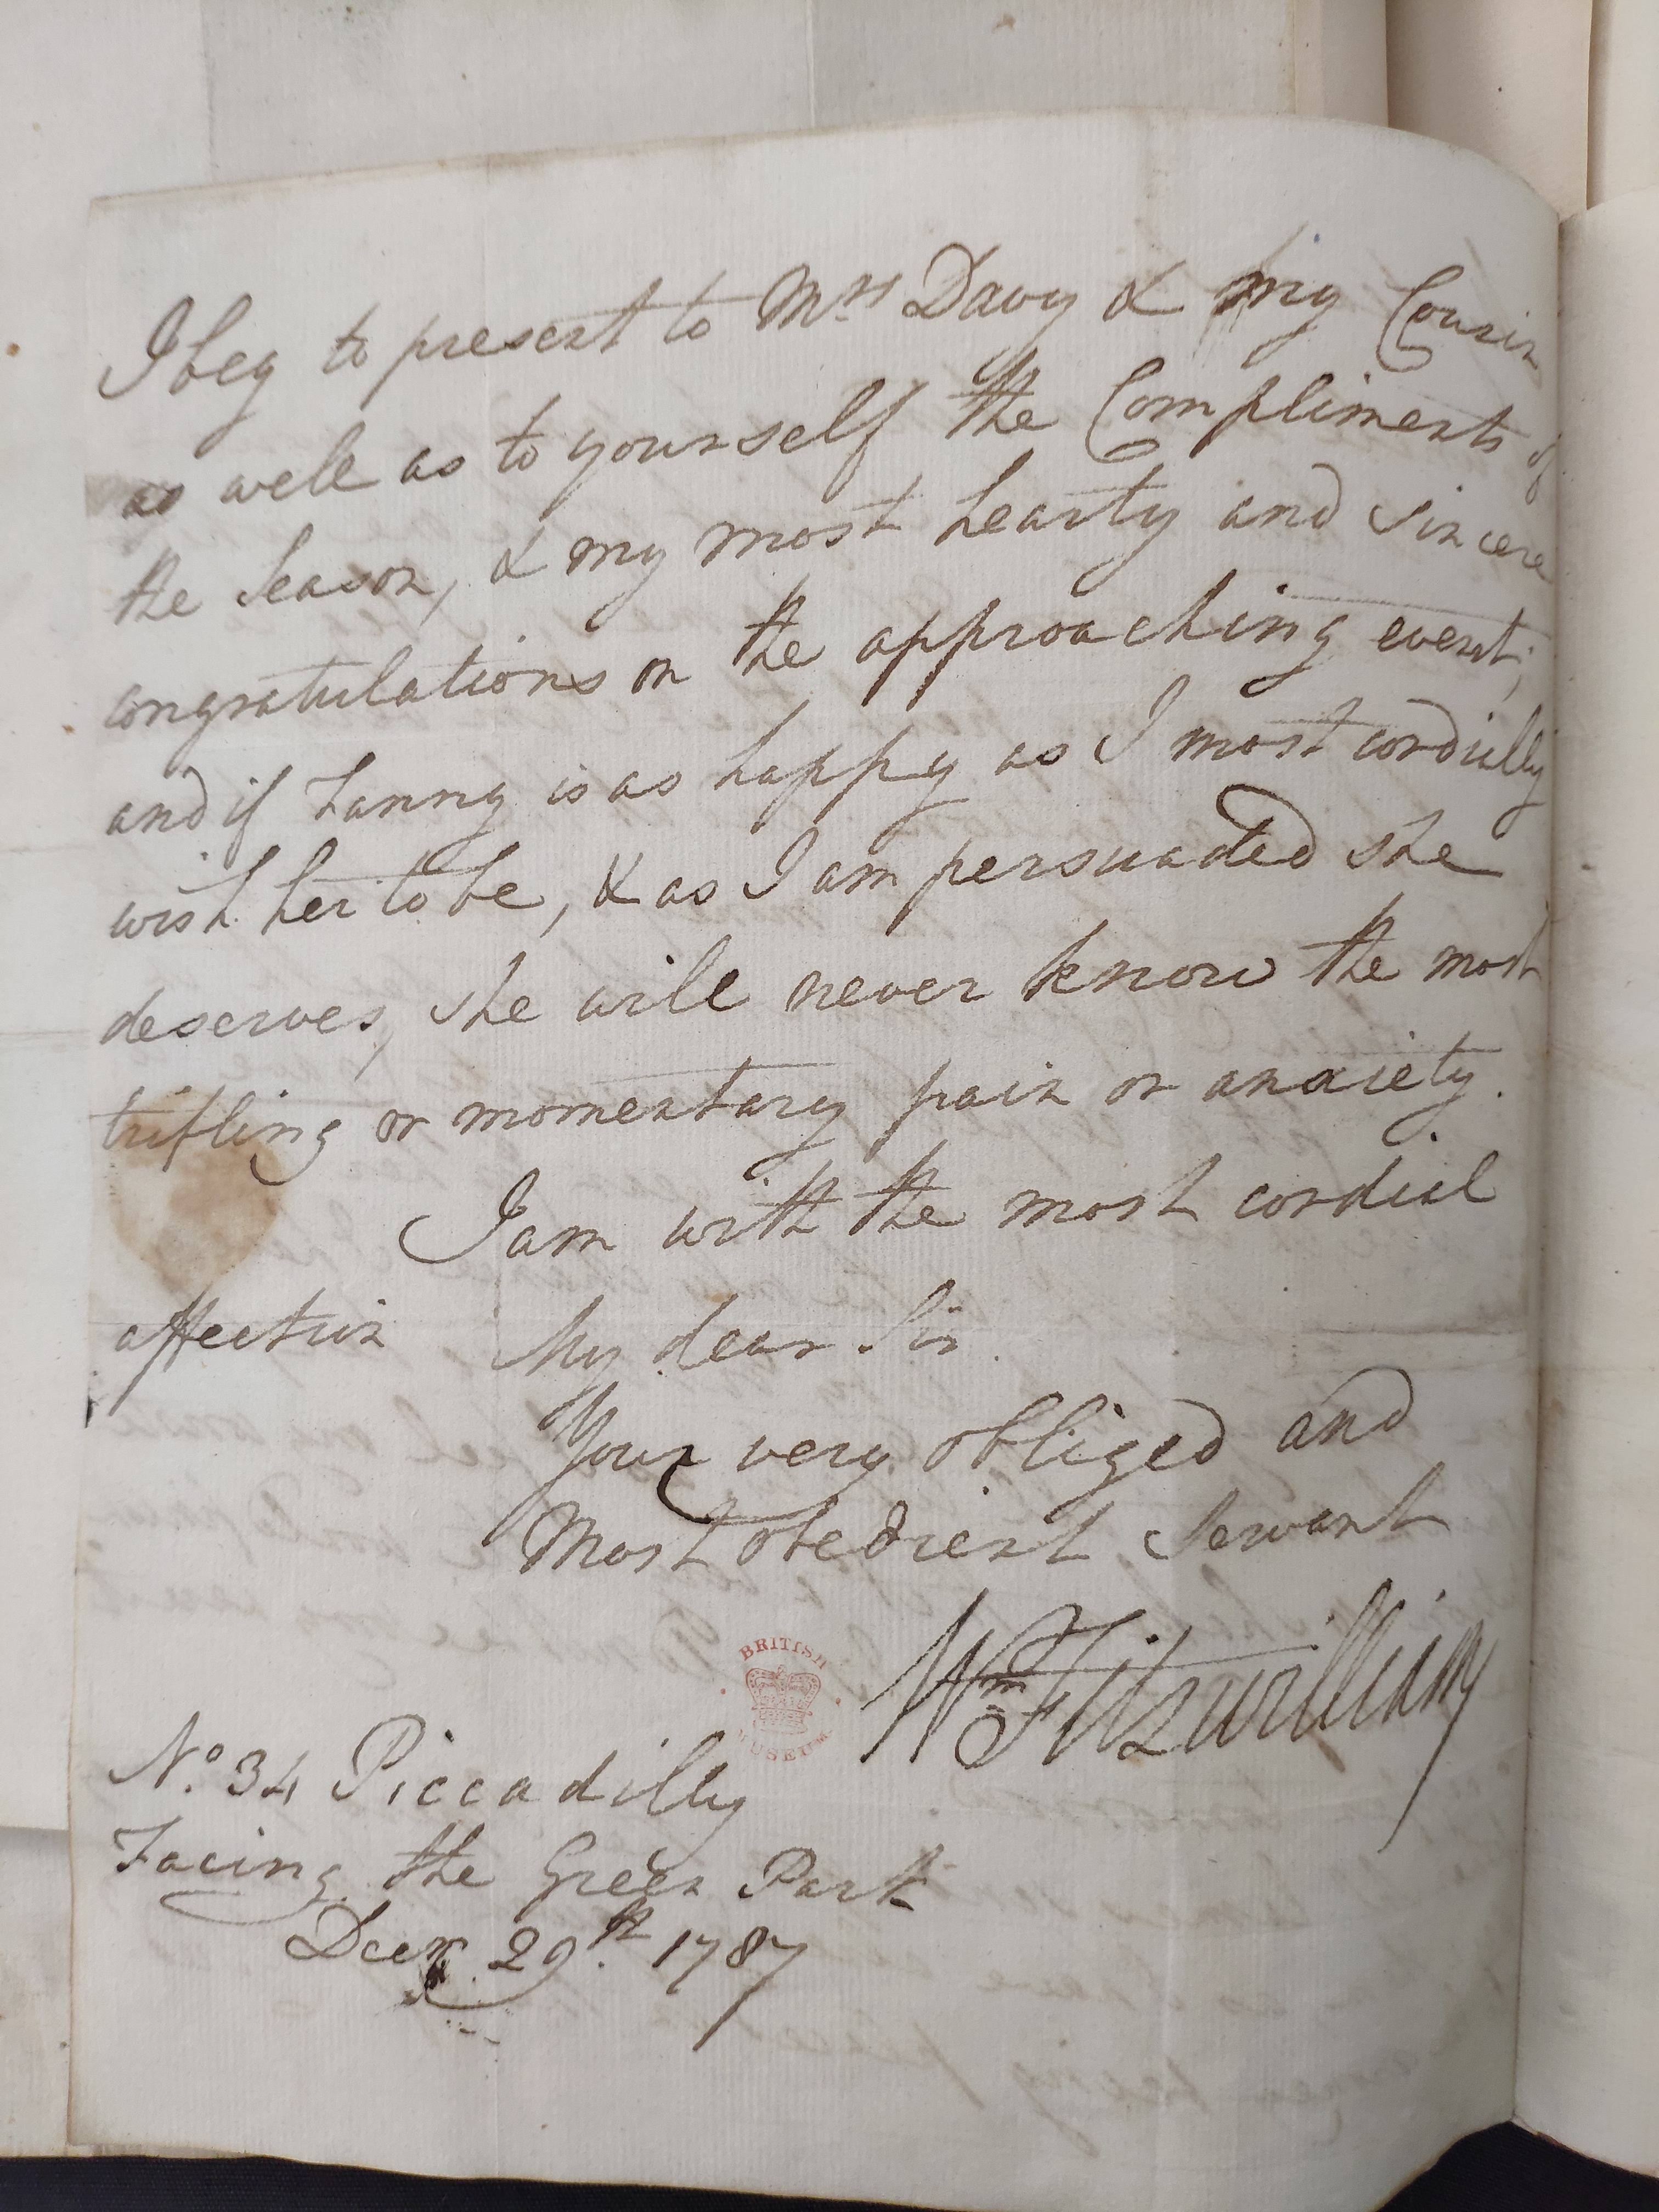 I beg to present to Mrs Davy & my Cousin
as well as to yourself the Compliments of
the Season, & my most hearty and sincere
congratulations on the approaching event;
and if Fanny is as happy as I most cordially
wish her to be, & as I am persuaded she
deserves, she will never know the most
trifling or momentary pain or anxiety.
I am with the most cordial
affection My dear Sir
Your very obliged and
Most obedient Servant
Wm Fitzwilliam
BRITISH
MUSEUM
No. 34 Piccadilly
Facing the Green Park
Decr. 29th. 1787